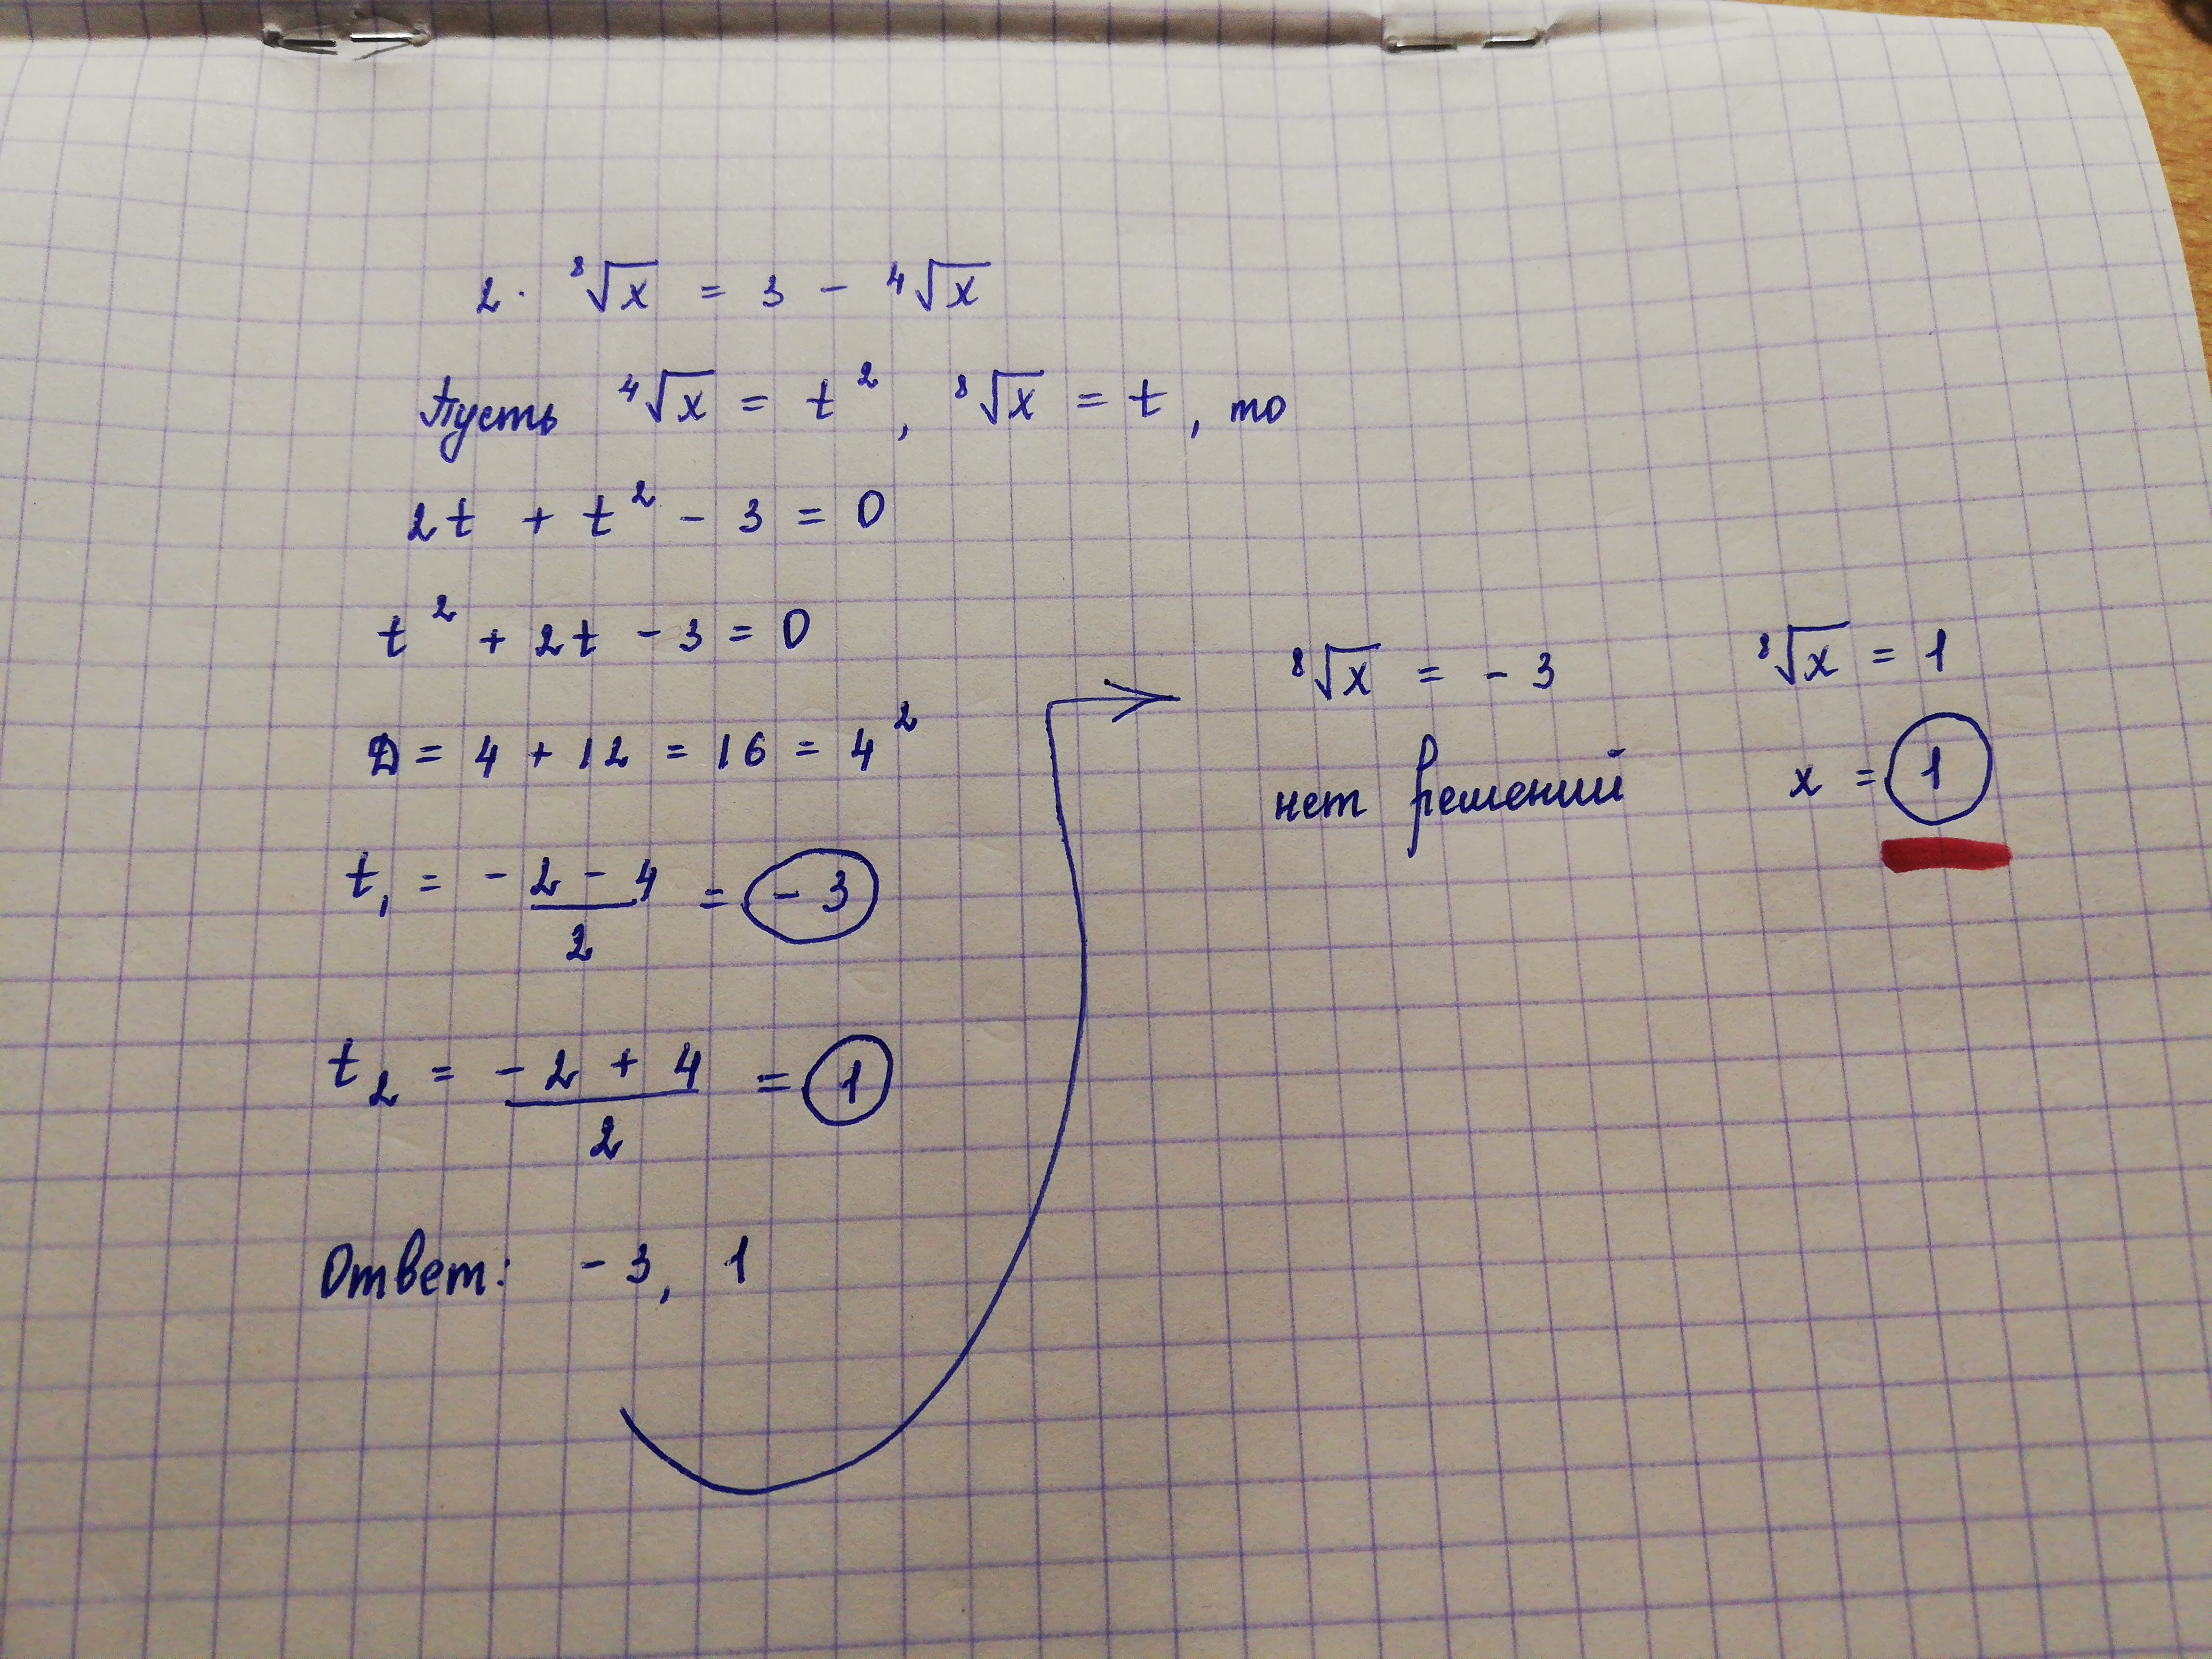 2 · ⁸√x = 3 - ⁴√x
Пусть ⁴√x = t², ⁸√x = t, то
2t + t² - 3 = 0
t² + 2t - 3 = 0
D = 4 + 12 = 16 = 4²
t₁ = - (2 - 4)/2 = -3
t₂ = (-2 + 4)/2 = 1
Ответ: -3, 1
⁸√x = -3
нет решений
⁸√x = 1
x = 1